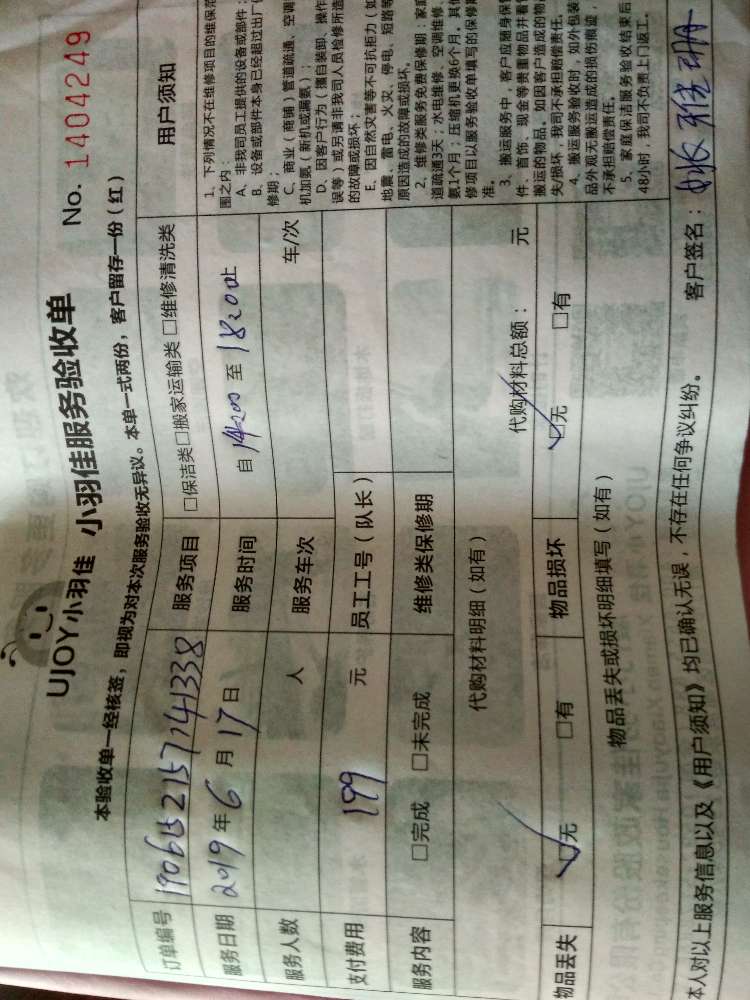 UJOY小羽佳 小羽佳服务验收单 No. 1404249
本验收单一经核签，即视为对本次服务验收无异议。本单一式两份，客户留存一份（红）
订单编号 190615215714133８ 服务项目 □保洁类□搬家运输类 □维修清洗类
服务日期 2019年6月17日 服务时间 自 14:00 至 18:00止
服务人数 人 服务车次 车/次
支付费用 199 元 员工工号（队长）
服务内容 □完成 □未完成 维修类保修期
代购材料明细（如有） 代购材料总额： 元
物品丢失 □无 □有 物品损坏 □无 □有
物品丢失或损坏明细填写（如有）
用户须知
1、下列情况不在维修项目的维保范
围之内：
A、非我司员工提供的设备或部件；
B、设备或部件本身已经超过出厂
修期；
C、商业（商铺）管道疏通、空调
机加氨（新机或漏氨）；
D、因客户行为（擅自装卸、操作
误等）或另请非我司人员检修所造
的故障或损坏；
E、因自然灾害等不可抗拒力（如
地震、雷电、火灾、停电、短路等
原因造成的故障或损坏。
2、维修类服务免费保修期：家庭
道疏通3天；水电维修、空调维修、
氨1个月；压缩机更换6个月。其他
修项目以服务验收单填写的保修期
准。
3、搬运服务中，客户应随身保
件、首饰、现金等贵重物品并看管
搬运的物品。如因客户造成的物品
失/损坏，我司不承担赔偿责任。
4、搬运服务验收时，如外包装
品外观无搬运造成的损伤痕迹，
不承担赔偿责任。
5、家庭保洁服务验收结束后
48小时，我司不负责上门返工。
本人对以上服务信息以及《用户须知》均已确认无误，不存在任何争议纠纷。 客户签名：